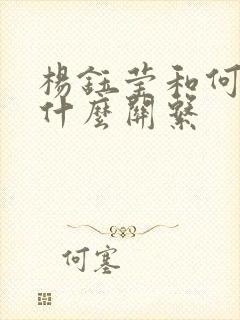 楊鈺莹和何
什麼關繫
何塞